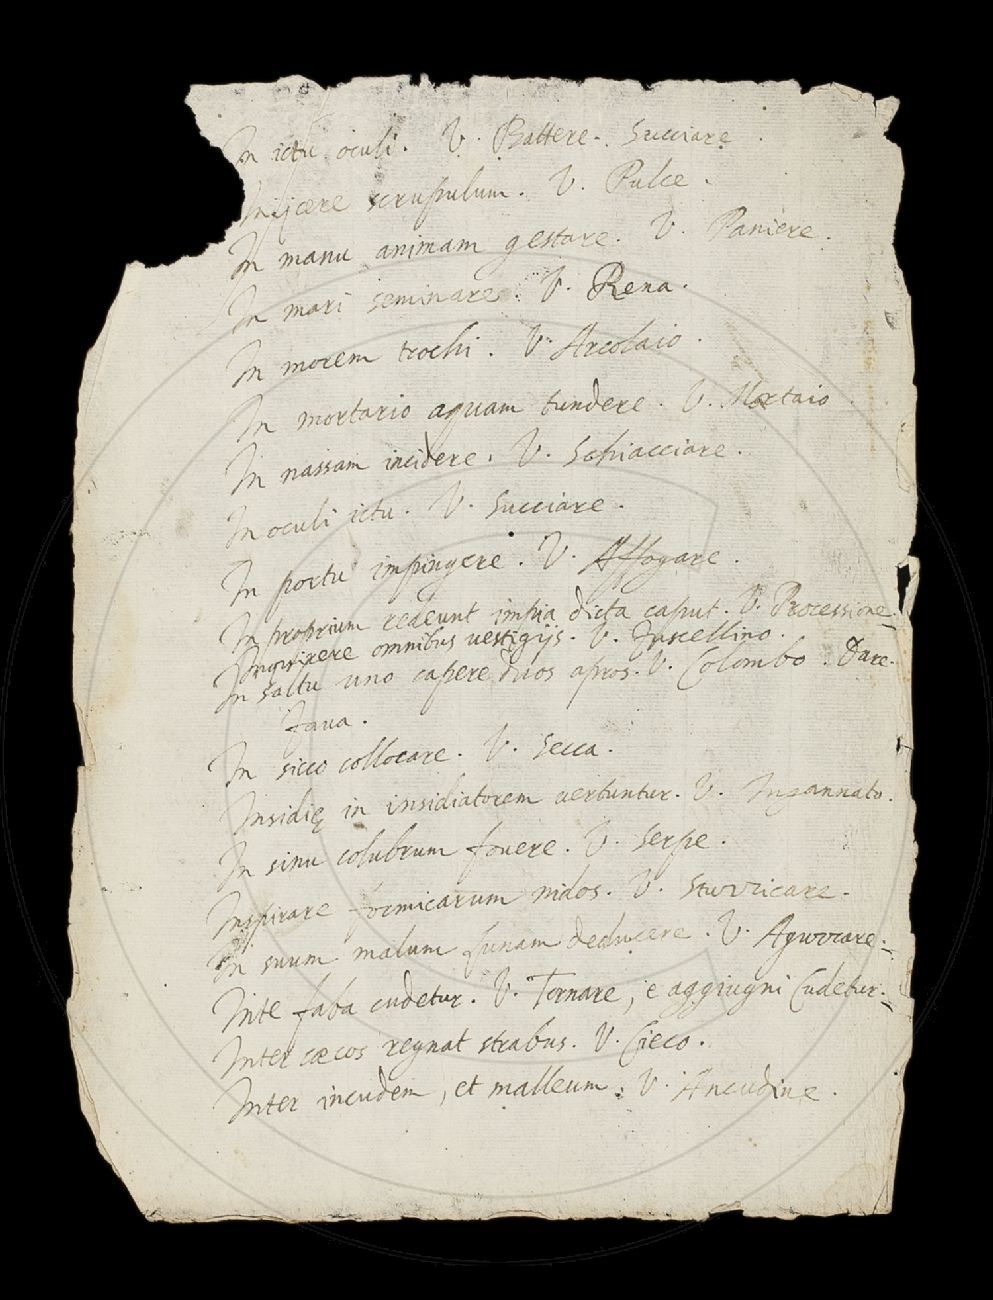 In ictu oculi. V. Battere. Succiare.
Inijcere scrupulum. V. Pulce.
In manu animam gestare. V. Paniere.
In mari seminare. V. Rena.
In morem trochi. V. Arcolaio.
In mortario aquam tundere. V. Mortaio
In nassam incidere. V. Schiacciare.
In oculi ictu. V. Succiare.
In portu impingere. V. Affogare.
In proprium redeunt impia dicta caput. V. Processione.
omnibus uestigijs. V. Fuscellino.
In saltu uno capere duos apros. V. Colombo. Dare.
faua.
In sicco collocare. V. Secca.
Insidię in insidiatorem uertuntur. V. Ingannato.
In sinu colubrum fouere. V. Serpe.
Inspirare formicarum nidos. V. Stuzzicare.
In suum malum lunam deducere. V. Aguzzare.
In te faba cudetur. V. Tornare, e aggiugni Cudetur.
Inter cæcos regnat strabus. V. Cieco.
Inter incudem, et malleum. V. Ancudine.